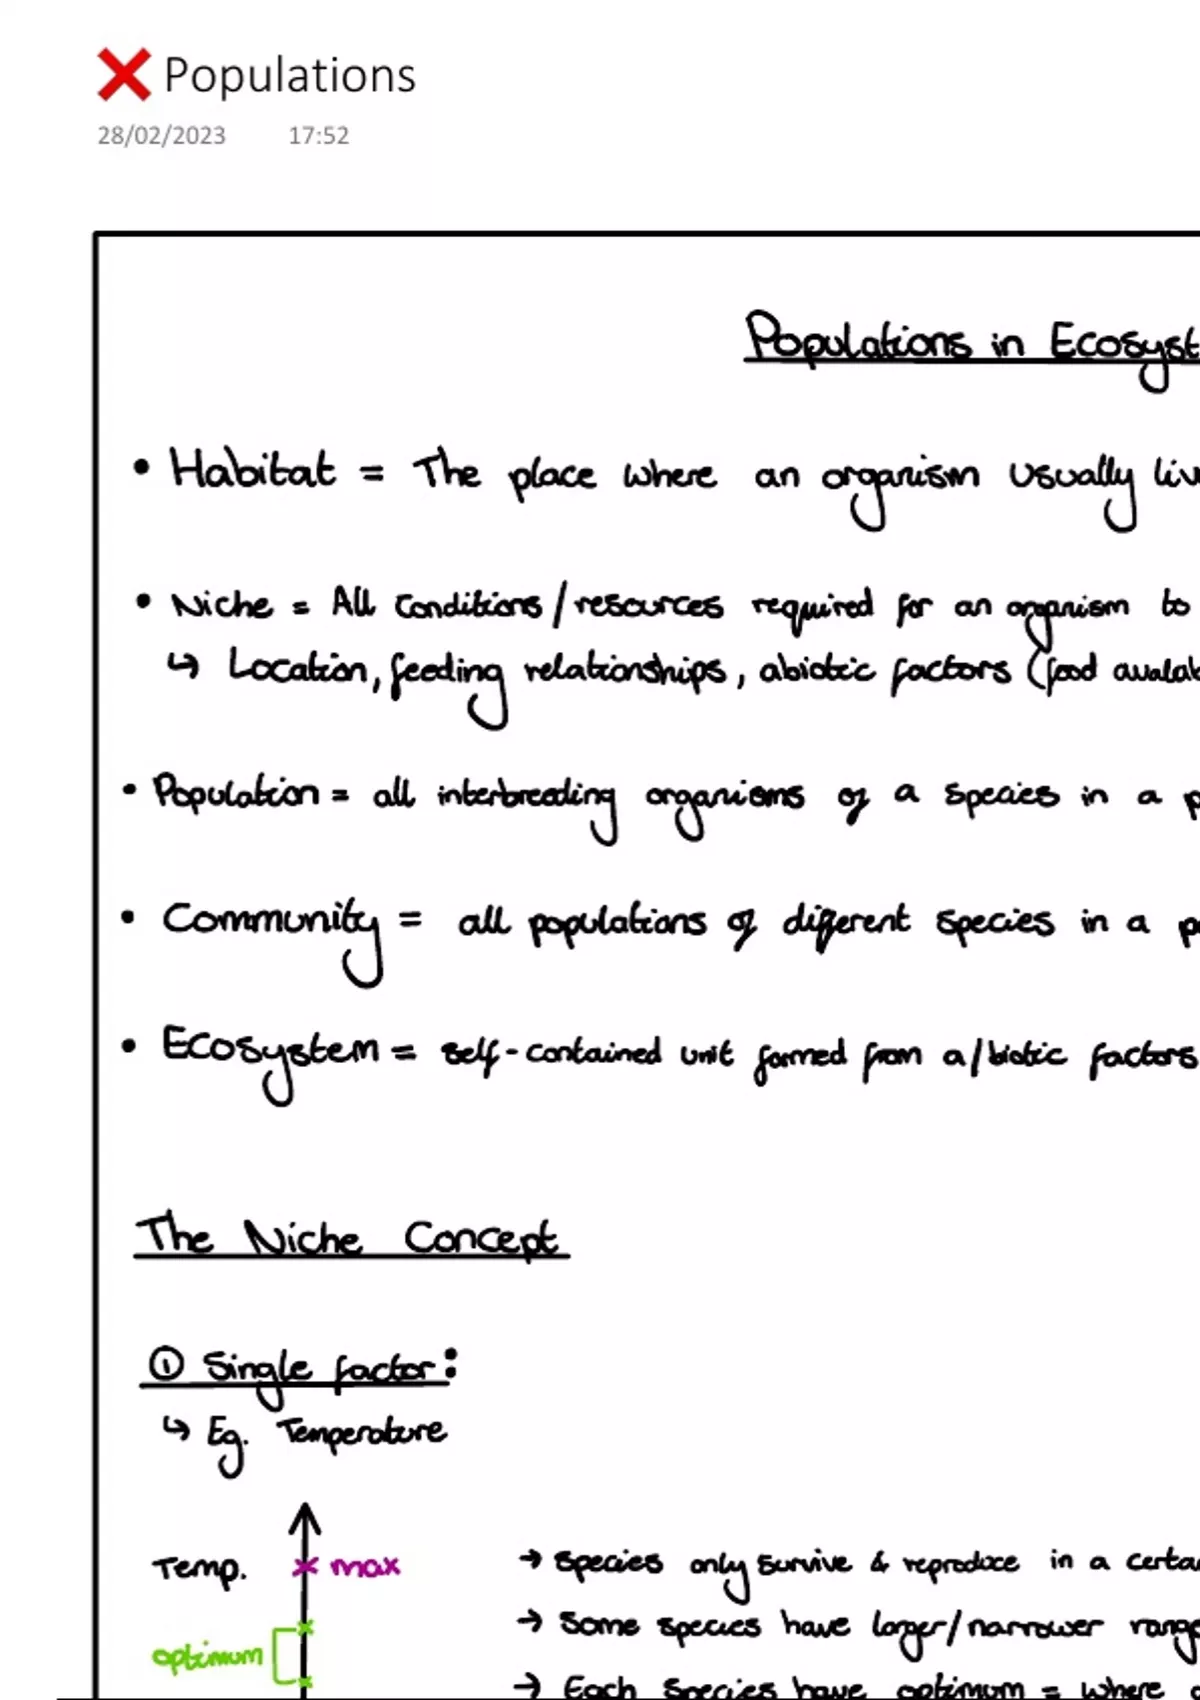 ❌ Populations
28/02/2023 17:52
Populations in Ecosyst
• Habitat = The place where an organism usually liv
• Niche = All conditions/resources required for an organism to
↳ Location, feeding relationships, abiotic factors (food availab
• Population = all interbreeding organisms of a species in a p
• Community = all populations of different species in a p
• Ecosystem = self-contained unit formed from a/biotic factors
The Niche Concept
① Single factor:
↳ Eg. Temperature
Temp. max
→ Species only survive & reproduce in a certa
→ Some species have larger/narrower rang
optimum
→ Each species have optimum = where